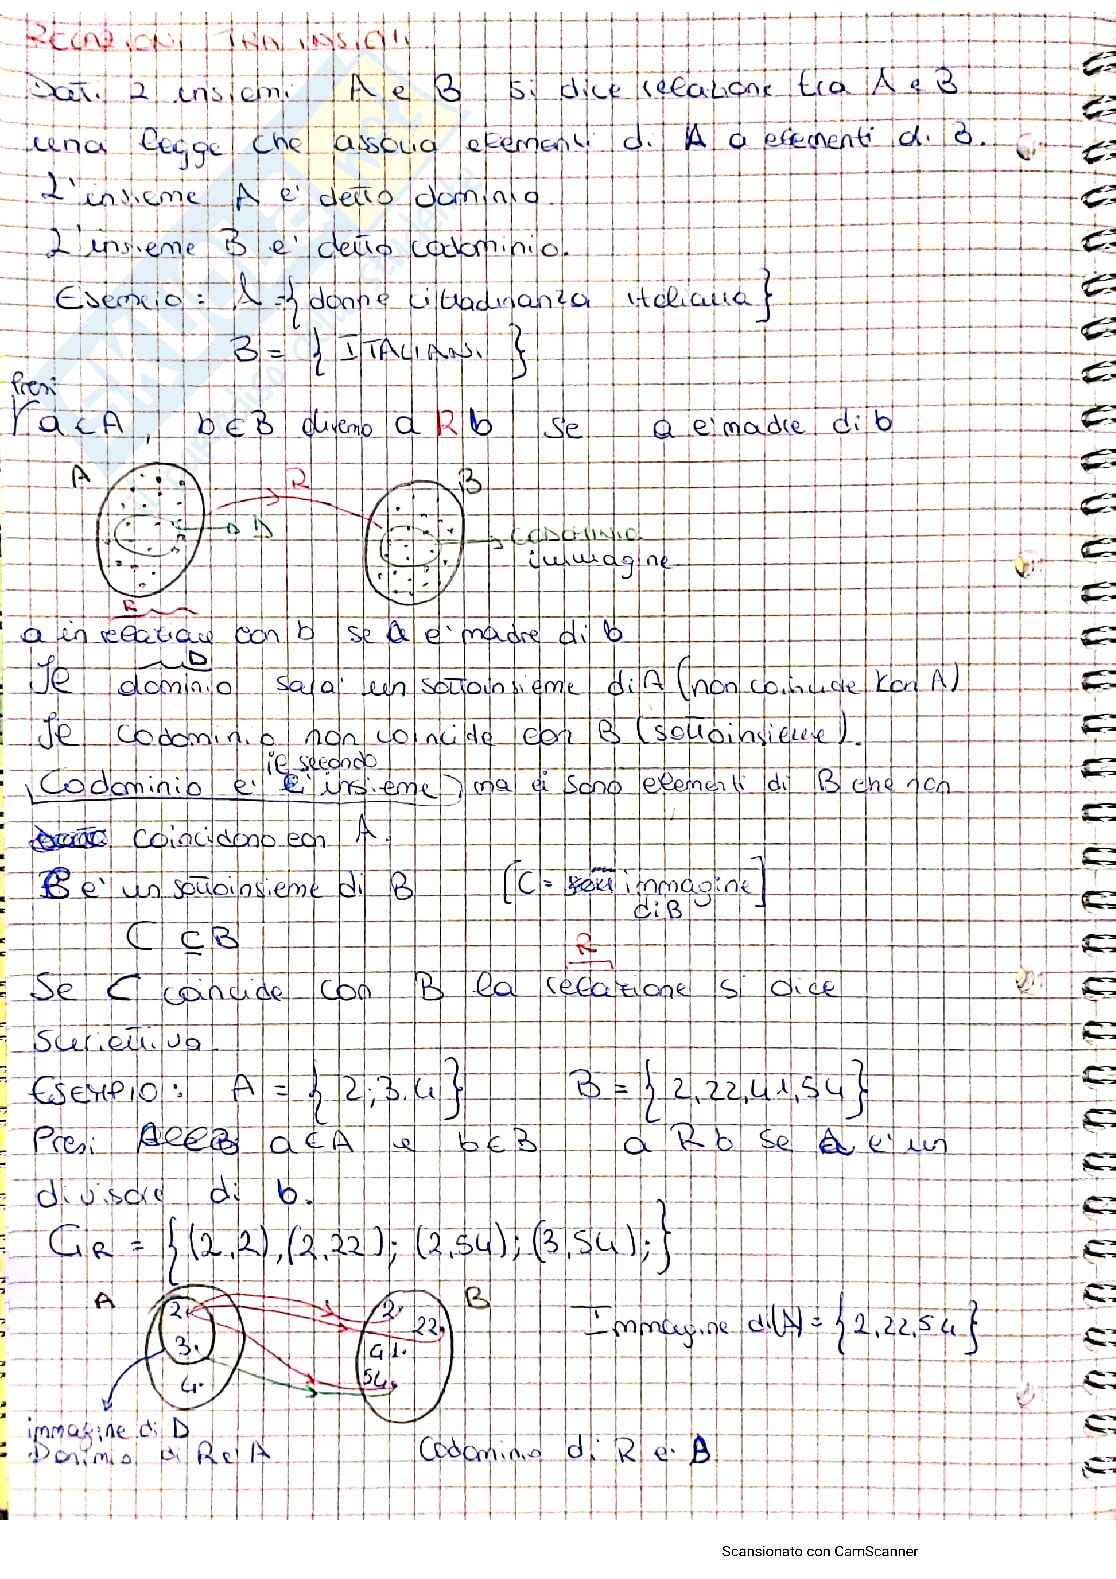 RELAZIONI TRA INSIEMI
Dati 2 insiemi A e B si dice relazione tra A e B
una legge che associa elementi di A a elementi di B.
L'insieme A e' detto dominio
L'insieme B e' detto codominio.
Esempio: A = { donne cittadinanza italiana }
B = { ITALIANI }
Presi
a ∈ A, b ∈ B diremo a R b se a e' madre di b
A R B
D CODOMINIO
immagine
R
a in relazione con b se a e' madre di b
D
Il dominio sara' un sottoinsieme di A (non coincide con A)
Il codominio non coincide con B (sottoinsieme).
il secondo
Codominio e' insieme, ma ci sono elementi di B che non
coincidono con A.
e' un sottoinsieme di B [C = immagine]
di B
C ⊆ B
R
Se C coincide con B la relazione si dice
suriettiva
ESEMPIO: A = { 2; 3, 4 } B = { 2, 22, 41, 54 }
Presi a ∈ A e b ∈ B a R b se a e' un
divisore di b.
GR = { (2,2), (2,22); (2,54); (3,54); }
A 2. 2. B
22.
3. 41.
4. 54.
Immagine di(A) = { 2, 22, 54 }
immagine di D
Dominio di R e' A Codominio di R e' B
Scansionato con CamScanner